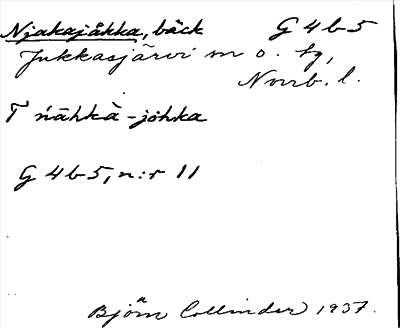 Njakajåkka, bäck G 4 b 5
Jukkasjärvi sn o. tg,
Norrb. l.
T ńāhkà-johka
G 4 b 5, n:r 11
Björn Collinder 1937.